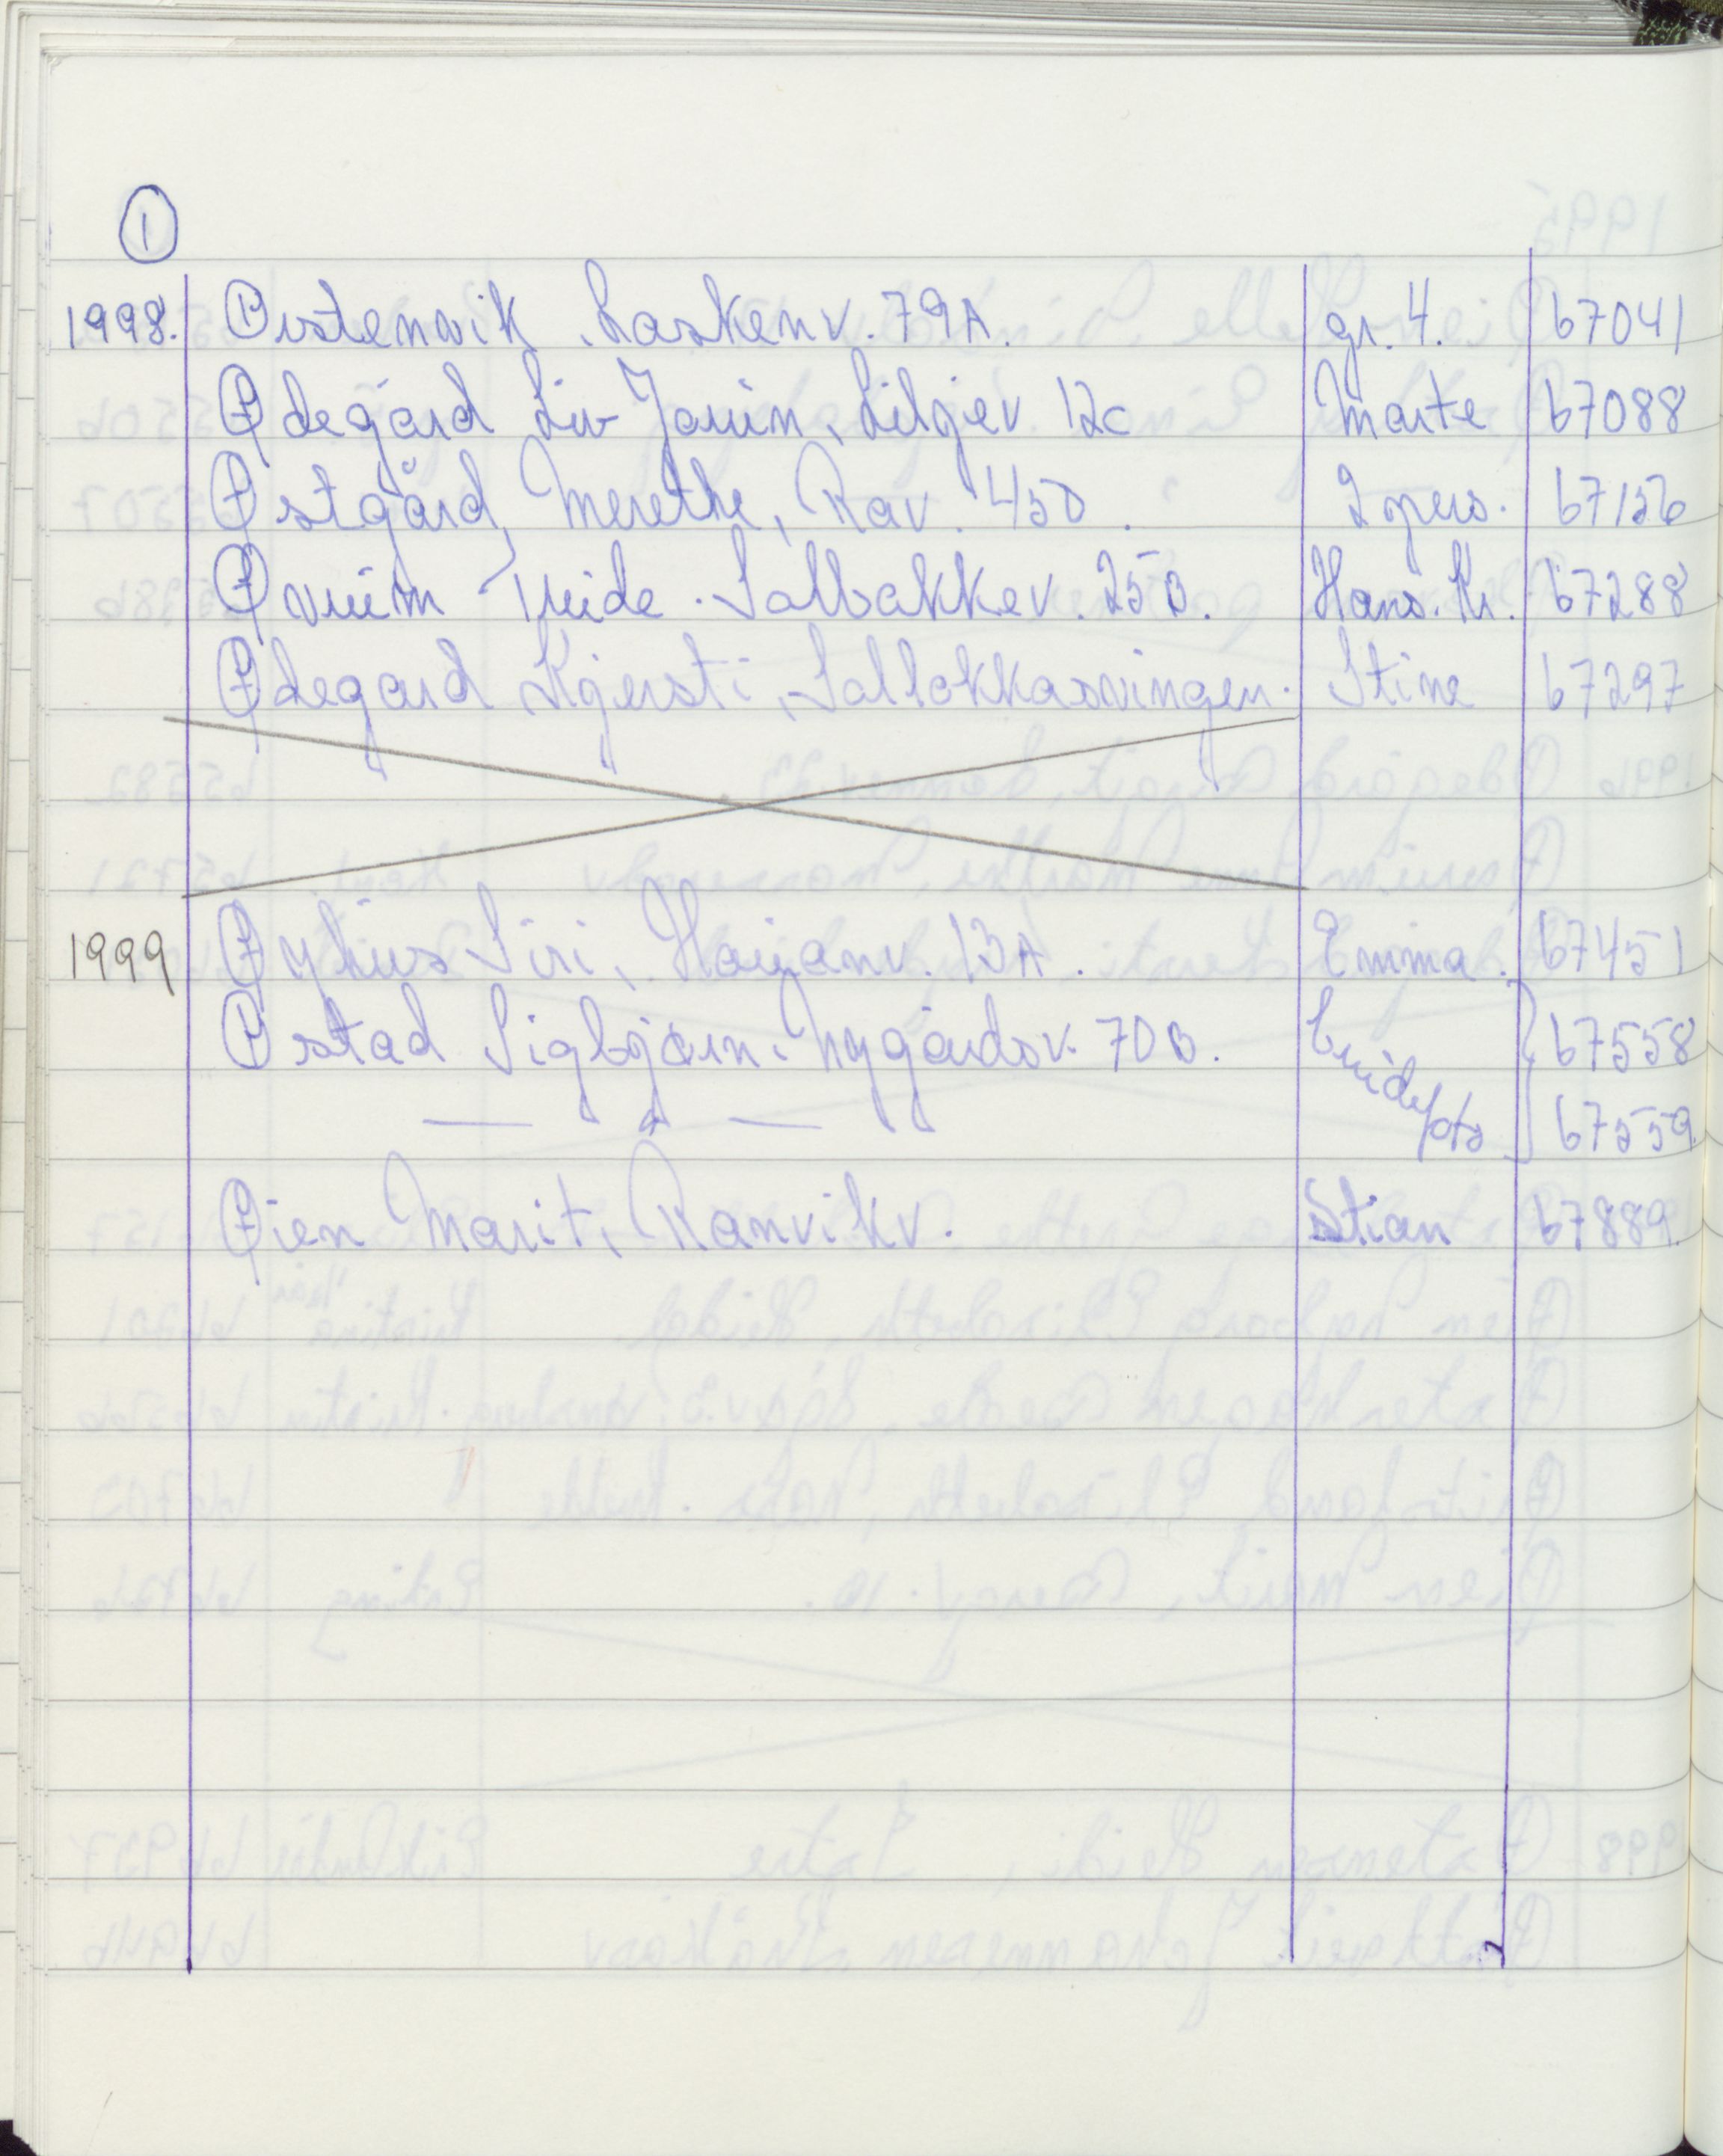 ①
1998. Østenvik, Laskenv. 79A. gr. 4. 67041
Ødegård Liv Jorun, Liljev 12c Marte 67088
Østgård, Merethe, Rav. 45D. 2 pers. 67156
Øvrum Vide. Solbakkev. 25B. Hans. Kr. 67288
Ødegård Kjersti, Solløkkasvingen. Stine 67297
1999 Øyhus Siri, Haujanv. 13A. Emma. 67451
Østad Sigbjørn. Nygårdsv. 70B. 67558
— " — 67559.
Øien Marit, Ranvikv. Stian 67889.